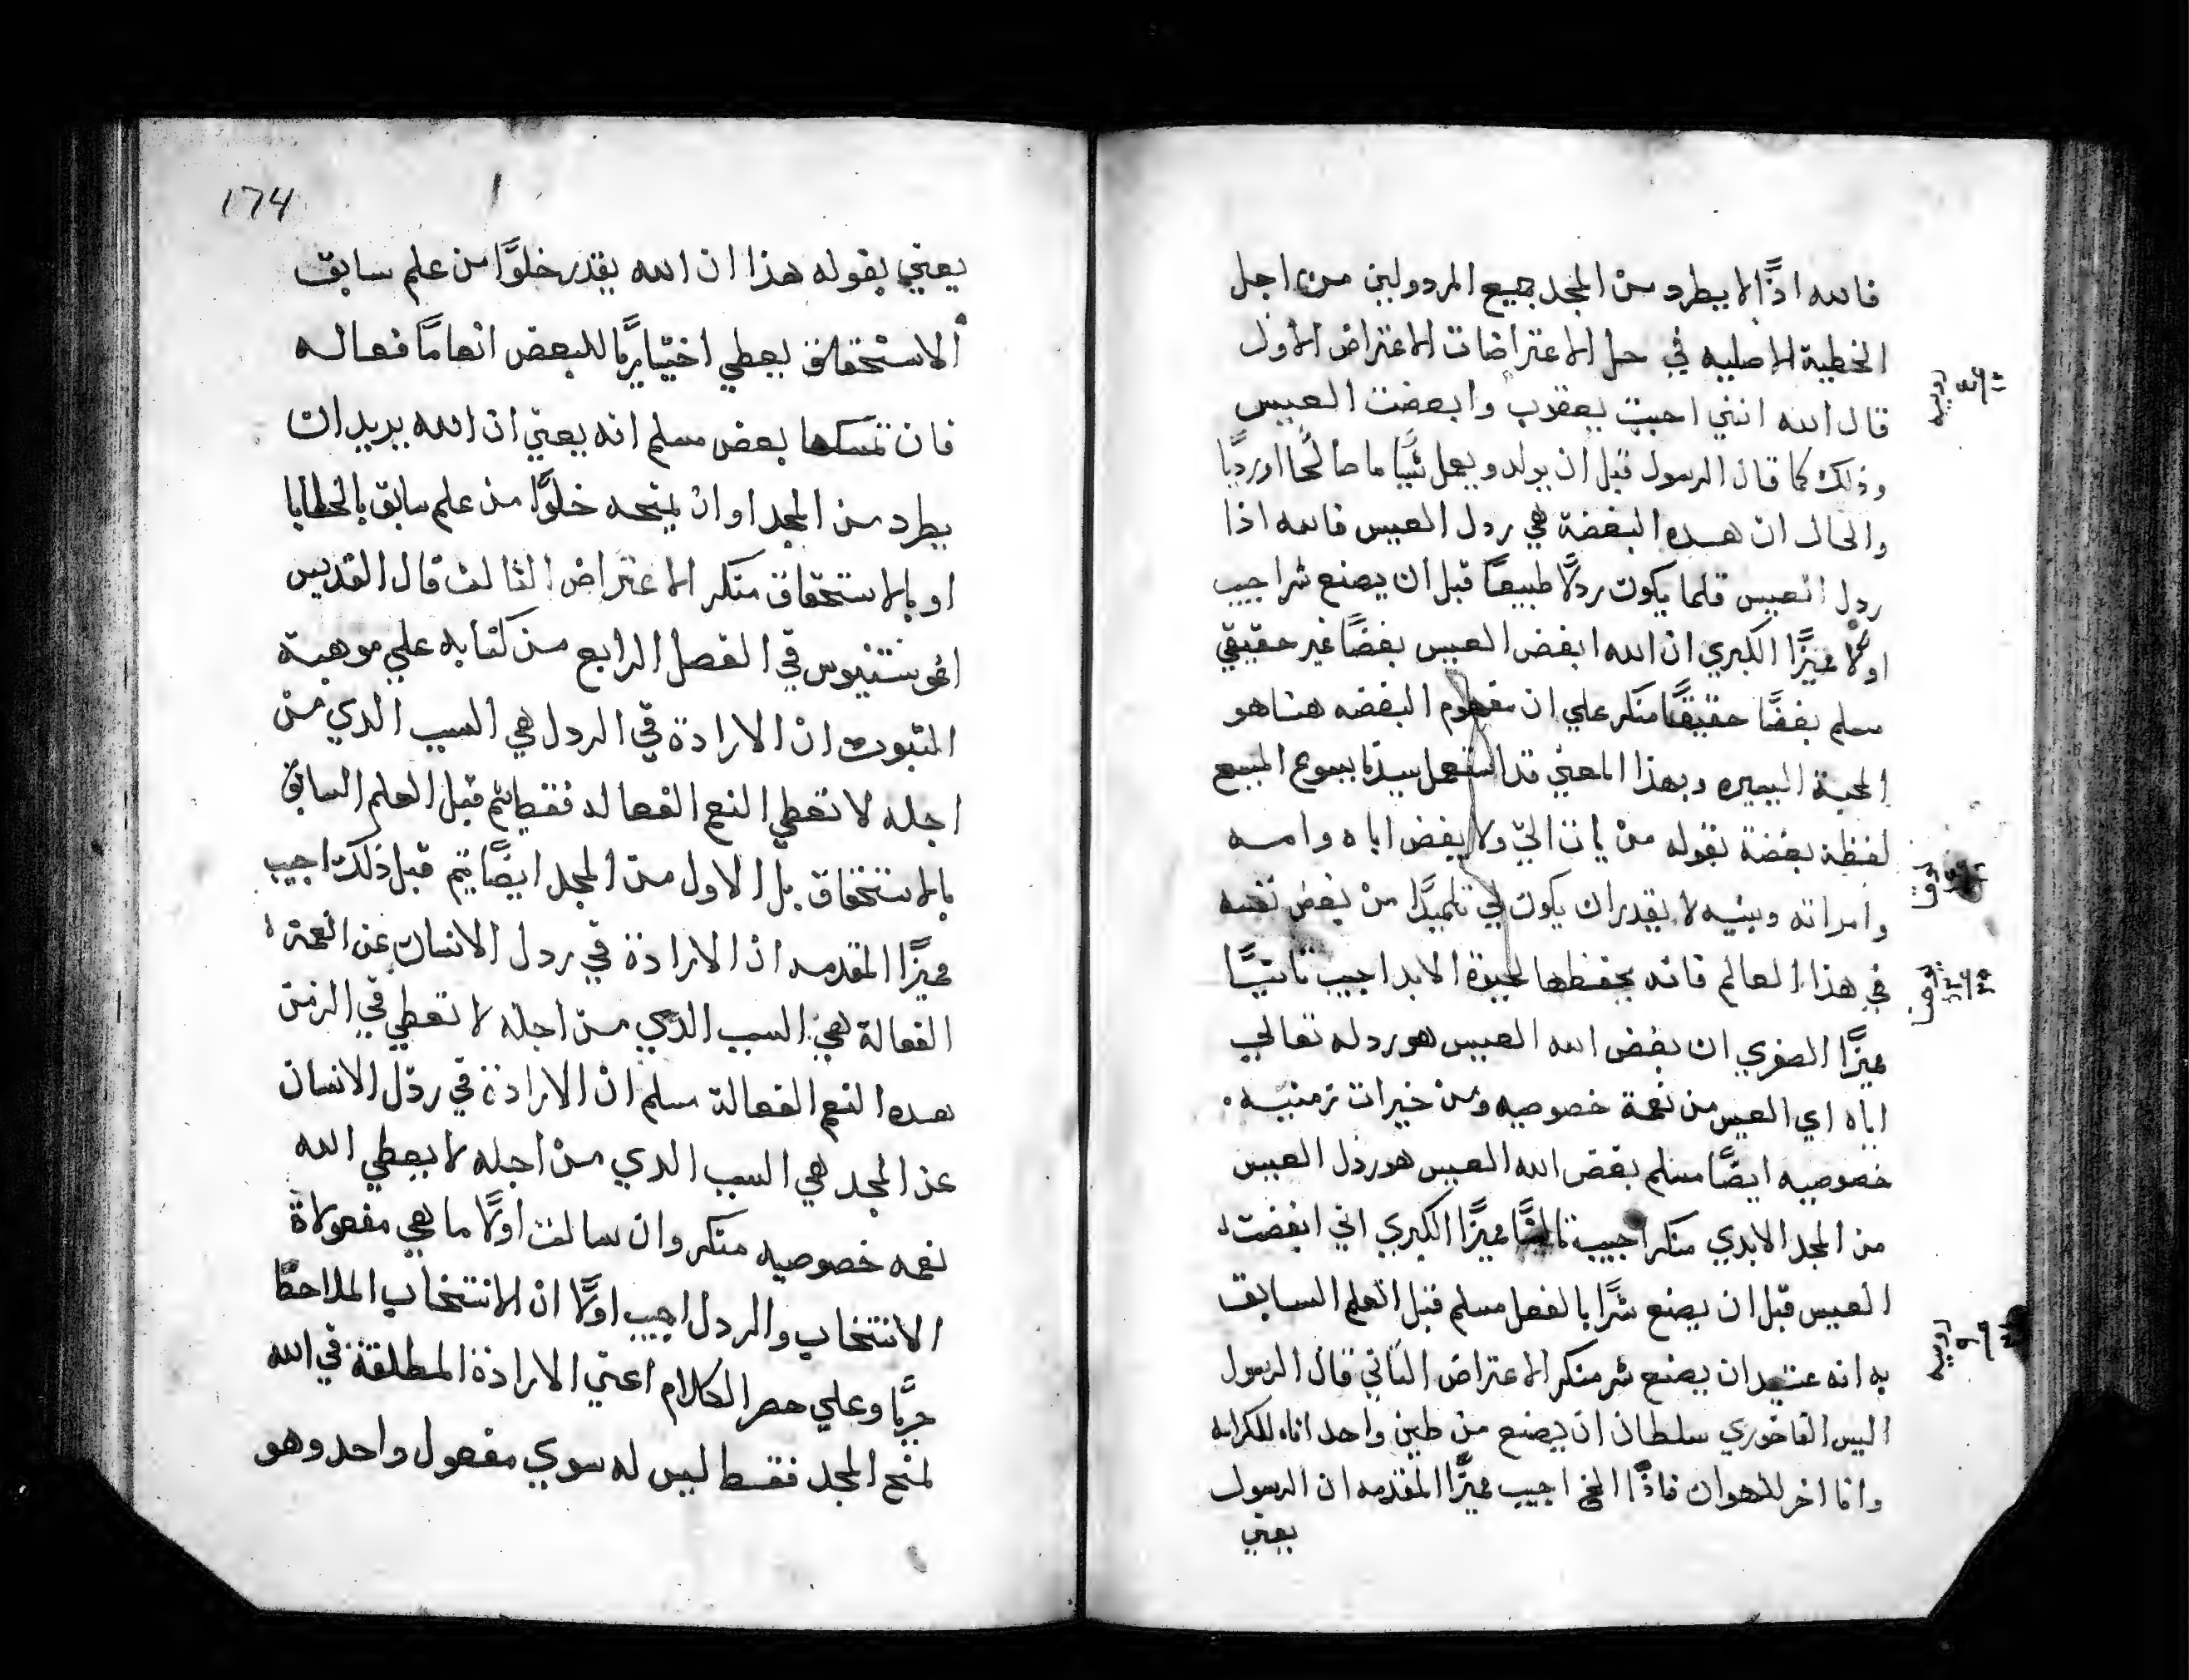 فالله اذًا لا يطرد من المجد جميع المردولين من اجل
الخطية الاصليه في حل الاعتراضات الاعتراض الاول
قال الله انني احببت يعقوب وابغضت العيس
وذلك كما قال الرسول قبل ان يولد ويعمل شيًا ما صالحًا او رديًا
والحال ان هده البغضة هي ردل العيس فالله اذا
ردل العيس قلما يكون ردلًا طبيعًا قبل ان يصنع شرا جيب
اولًا مميزًا الكبري ان الله ابغض العيس بغضًا غير حقيقي
مسلم بغضًا حقيقًا منكر علي ان مفهوم البغضه هنا هو
المحبة اليسيره وبهذا المعني قد استعمل سيدنا يسوع المسيح
لفظة بغضة بقوله من يات اليّ ولا يبغض اباه وامه
وامراته وبنيه لا يقدر ان يكون لي تلميدًا من يبغض نفسه
في هذا العالم فانه يحفظها لحيوة الابد اجيب ثانيًا
مميزًا الصغري ان بغض الله العيس هو ردله تعالي
اياه اي العيس من نعمة خصوصيه ومن خيرات زمنيه
خصوصيه ايضًا مسلم بغض الله العيس هو ردل العيس
من المجد الابدي منكر اجيب ثالثًا مميزًا الكبري اني ابغضت
العيس قبل ان يصنع شرًا بالفعل مسلم قبل العلم السابق
به انه عتيد ان يصنع شر منكر الاعتراض الثاني قال الرسول
اليس الفاخوري سلطان ان يصنع من طين واحد اناء للكرامه
وانا اخر للهوان فاذًا الخ اجيب مميزًا المقدمه ان الرسول
يعني
روميه
٩
١٣
لوقا
١٤
٢٦
يوحنا
١٢
٢٥
روميه
٩
174
يعني بقوله هذا ان الله يقدر خلوًا من علم سابق
الاستحقاق يعطي اختياريًا للبعض انعامًا فعاله
فان تمسكها بعض مسلم انه يعني ان الله يريد ان
يطرد من المجد او ان يمنحه خلوًا من علم سابق بالخطايا
او بالاستحقاق منكر الاعتراض الثالث قال القديس
اغوستنيوس في الفصل الرابع من كتابه علي موهبة
الثبوت ان الارادة في الردل هي السبب الدي من
اجله لا تعطي النعم الفعاله فقط ثم قبل العلم السابق
بالاستحقاق بل الاول من المجد ايضًا يتم قبل ذلك اجيب
مميزًا المقدمه ان الارادة في ردل الانسان عن النعمة
الفعالة هي السبب الدي من اجله لا تعطي في الزمن
هده النعم الفعالة مسلم ان الارادة في ردل الانسان
عن المجد هي السبب الدي من اجله لا يعطي الله
نعمه خصوصيه منكر وان سالت اولًا ما هي مفعولاة
الانتخاب والردل اجيب اولًا ان الانتخاب الملاحظ
حريًا وعلي حصر الكلام اعني الارادة المطلقة في الله
لمنح المجد فقط ليس له سوي مفعول واحد وهو